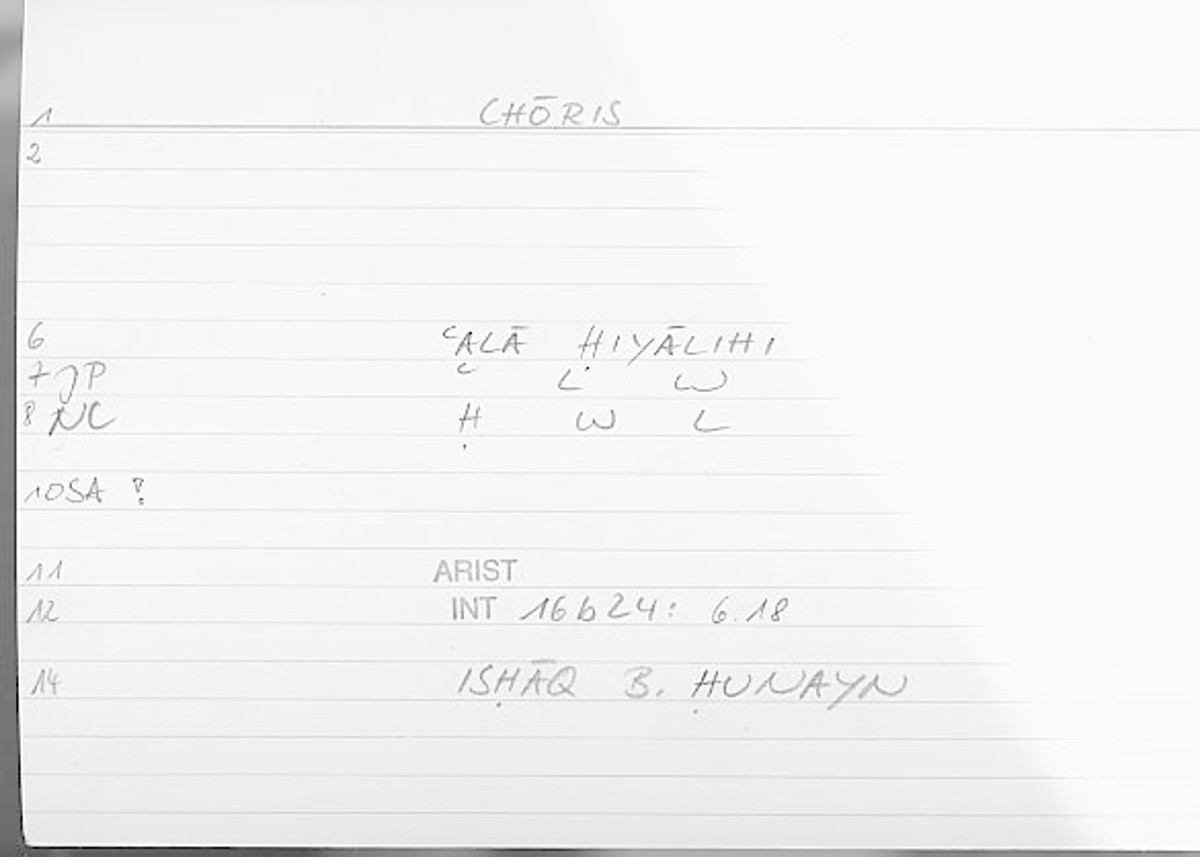 1 CHŌRIS
2
6 ʿALĀ ḤIYĀLIHI
7 JP ʿ L W
8 NC Ḥ W L
10 SA !
11 ARIST
12 INT 16b24: 6.18
14 ISḤĀQ B. ḤUNAYN